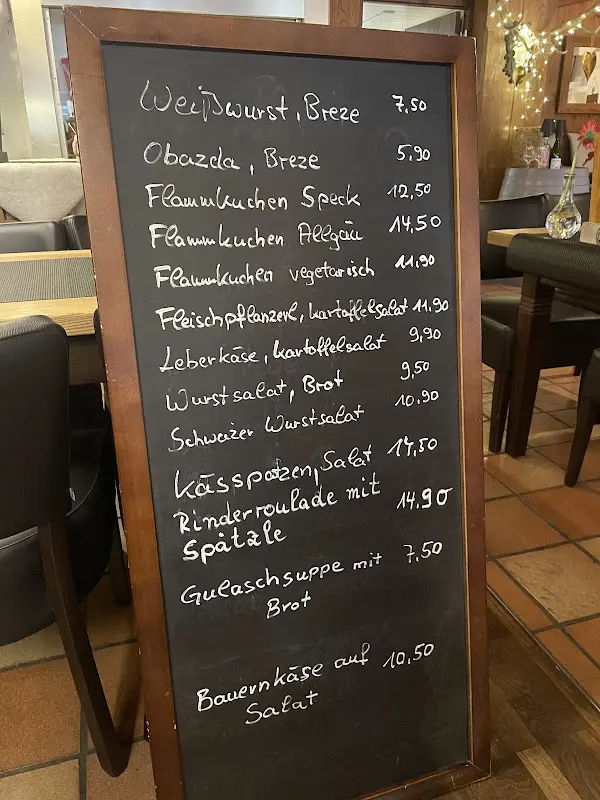 Weißwurst, Breze 7,50
Obazda, Breze 5,90
Flammkuchen Speck 12,50
Flammkuchen Allgäu 14,50
Flammkuchen vegetarisch 11,90
Fleischpflanzerl, Kartoffelsalat 11,90
Leberkäse, Kartoffelsalat 9,90
Wurstsalat, Brot 9,50
Schweizer Wurstsalat 10,90
Kässpatzen, Salat 14,50
Rinderroulade mit 14,90
Spätzle
Gulaschsuppe mit 7,50
Brot
Bauernkäse auf 10,50
Salat